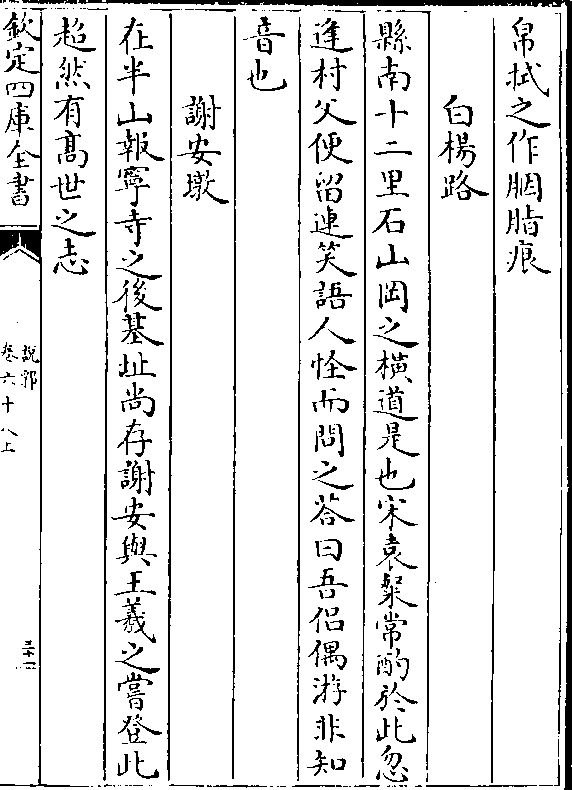 帛拭之作胭脂痕
白楊路
縣南十二里石山岡之橫道是也宋袁粲常酌於此忽
逢村父便留連笑語人怪而問之荅曰吾侣偶游非知
音也
謝安墩
在半山報寧寺之後基址尚存謝安與王羲之嘗登此
超然有高世之志
欽定四庫全書
説郛
卷六十八上